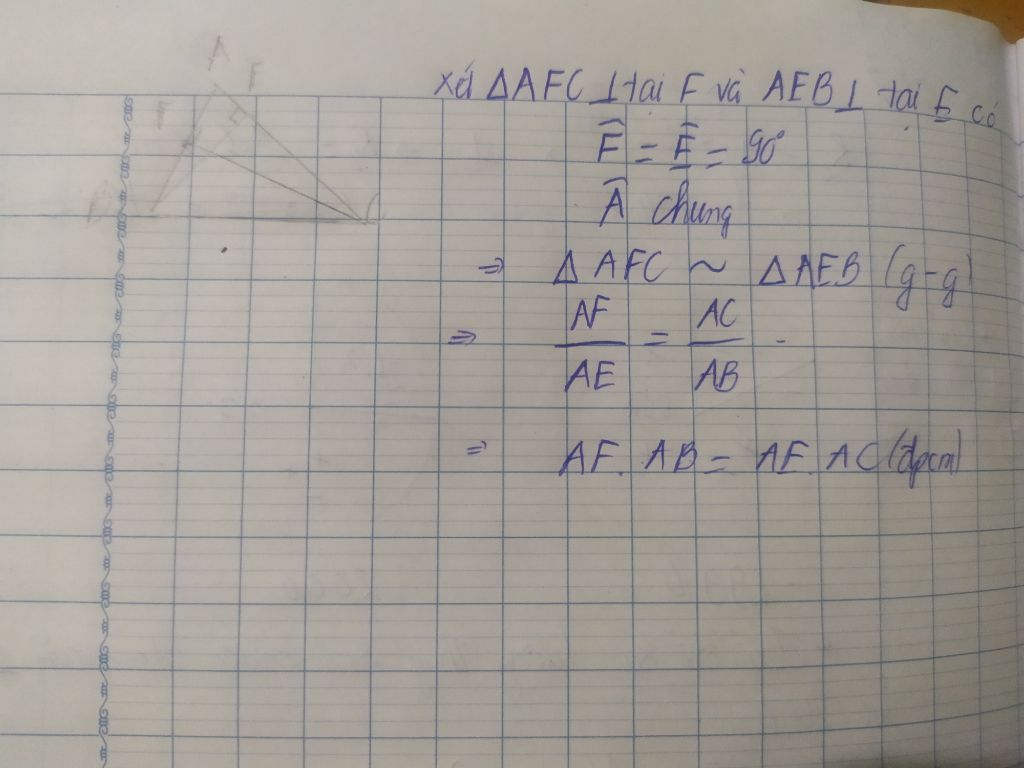 A
F
E
B
C
Xét ΔAFC ⊥ tại F và AEB ⊥ tại E có
F̂ = Ê = 90°
Â chung
⇒ ΔAFC ~ ΔAEB (g-g)
⇒ AF/AE = AC/AB
⇒ AF. AB = AE. AC (đpcm)